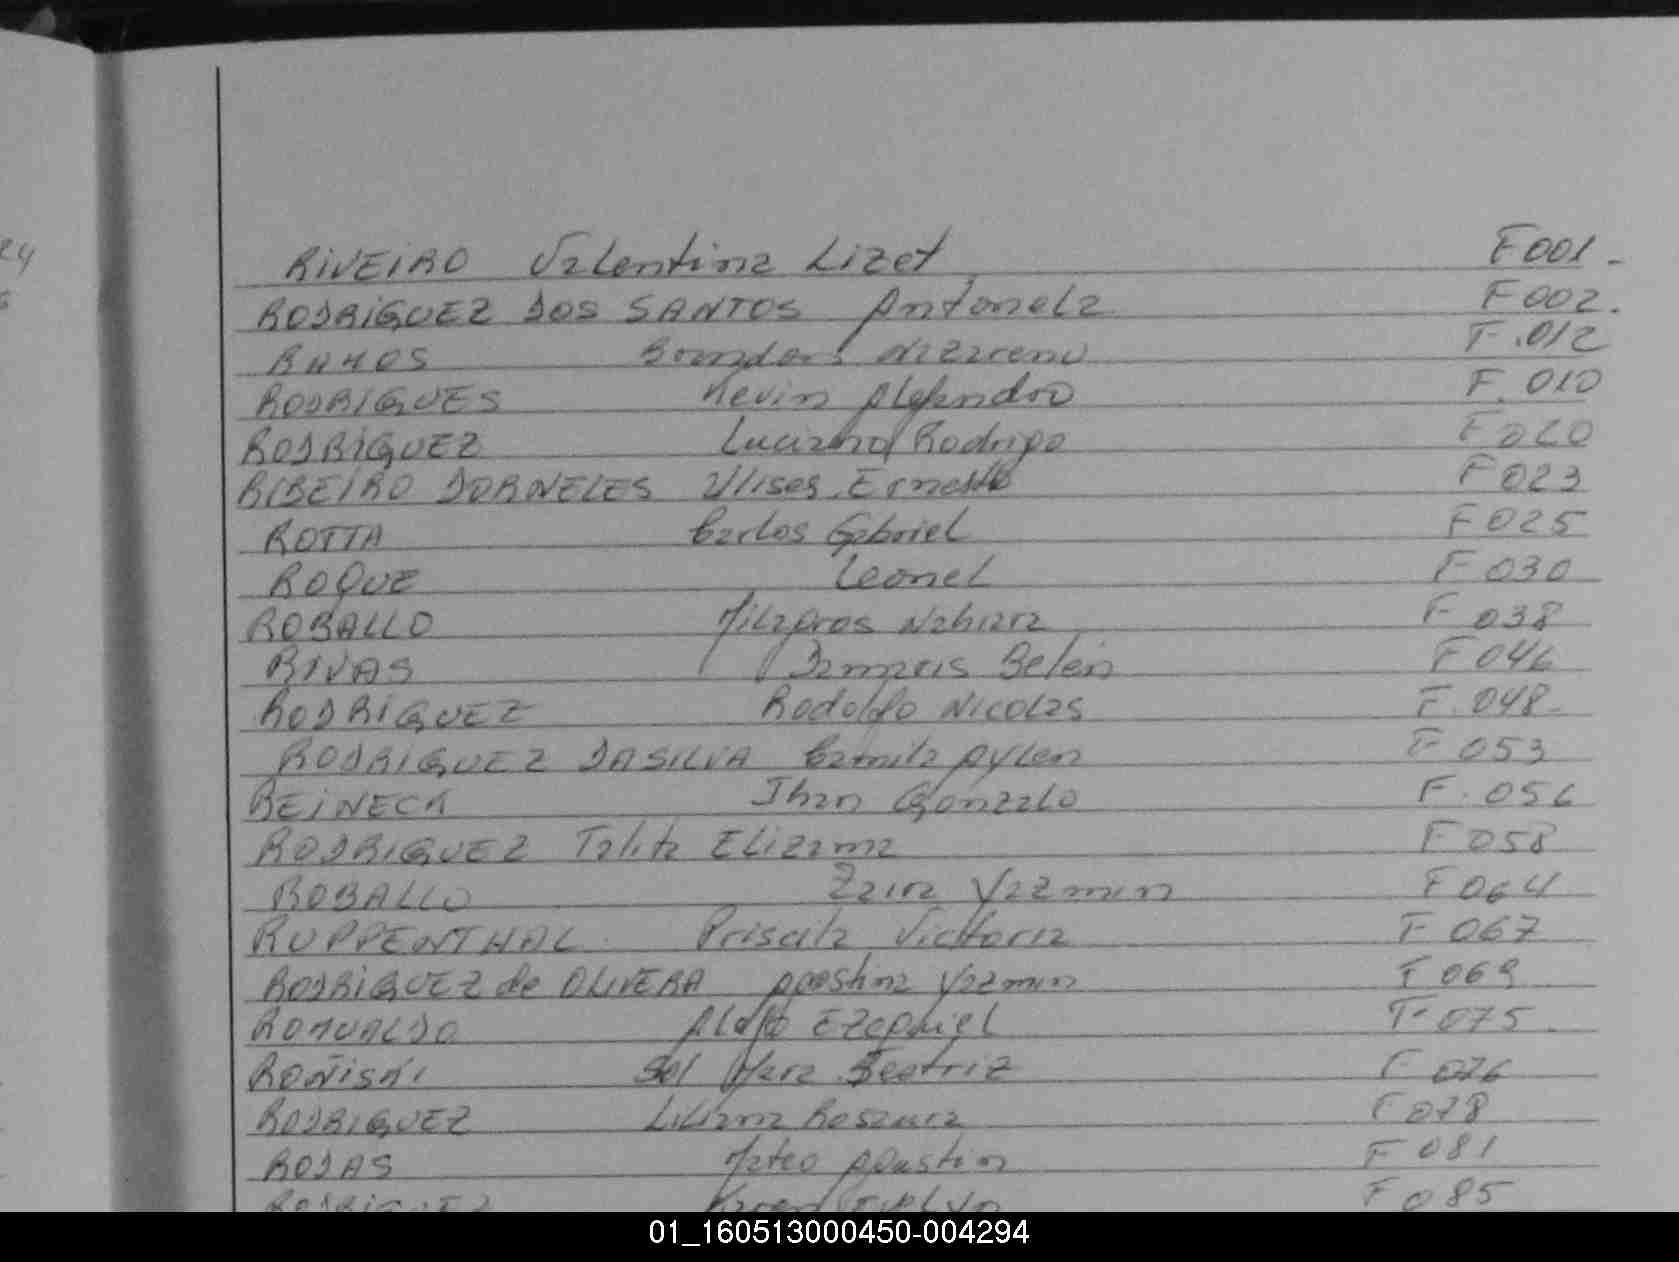 RIVEIRO Valentina Lizet F001.
RODRIGUEZ DOS SANTOS Antonela F002.
RAMOS Nazareno F.012
RODRIGUES Kevin Alejandro F.010
RODRIGUEZ Luciano Rodrigo F020
RIBEIRO DORNELES Ulises Ernesto F023
ROTTA Carlos Gabriel F025
ROQUE Leonel F030
ROBALLO Milagros Nahiara F038
RIVAS Damaris Belén F046
RODRIGUEZ Rodolfo Nicolas F.048
RODRIGUEZ DA SILVA Camila Aylen F053
REINECK Jhan Gonzalo F.056
RODRIGUEZ Talita Elizama F058
ROBALLO Zaira Yazmin F064
RUPPENTHAL Priscila Victoria F067
RODRIGUEZ de OLIVERA Agostina Yazmin F069
ROMUALDO Ezequiel F075
ROÑISKI Sol Mara Beatriz F076
RODRIGUEZ Liliana Rosaura F078
ROJAS Mateo Agustin F081
RODRIGUEZ Karen Evelyn F085
01_160513000450-004294